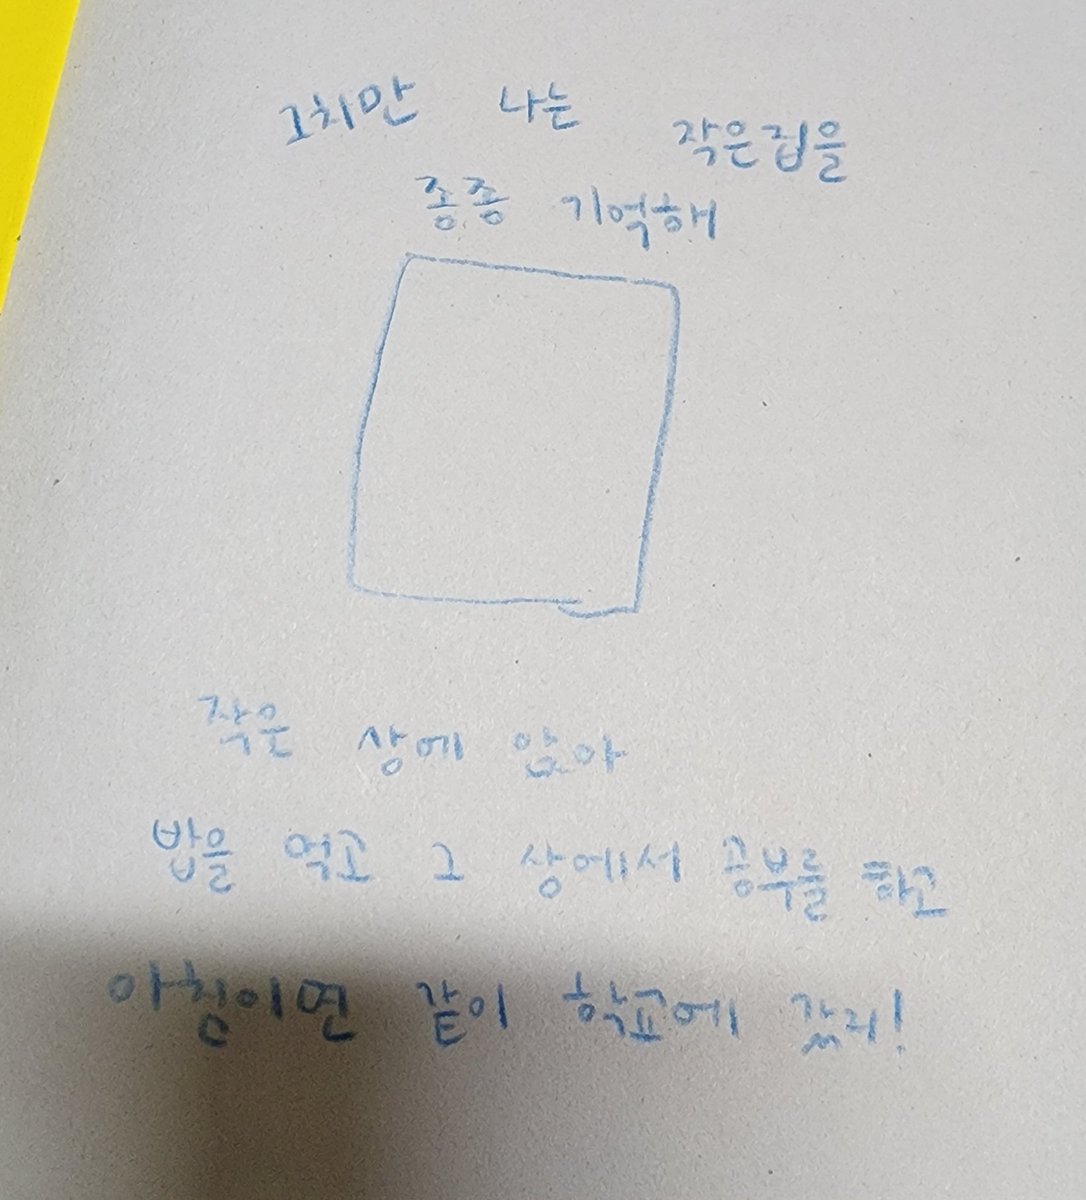 그치만 나는 작은집을
종종 기억해
작은 상에 앉아
밥을 먹고 그 상에서 공부를 하고
아침이면 같이 학교에 갔지!